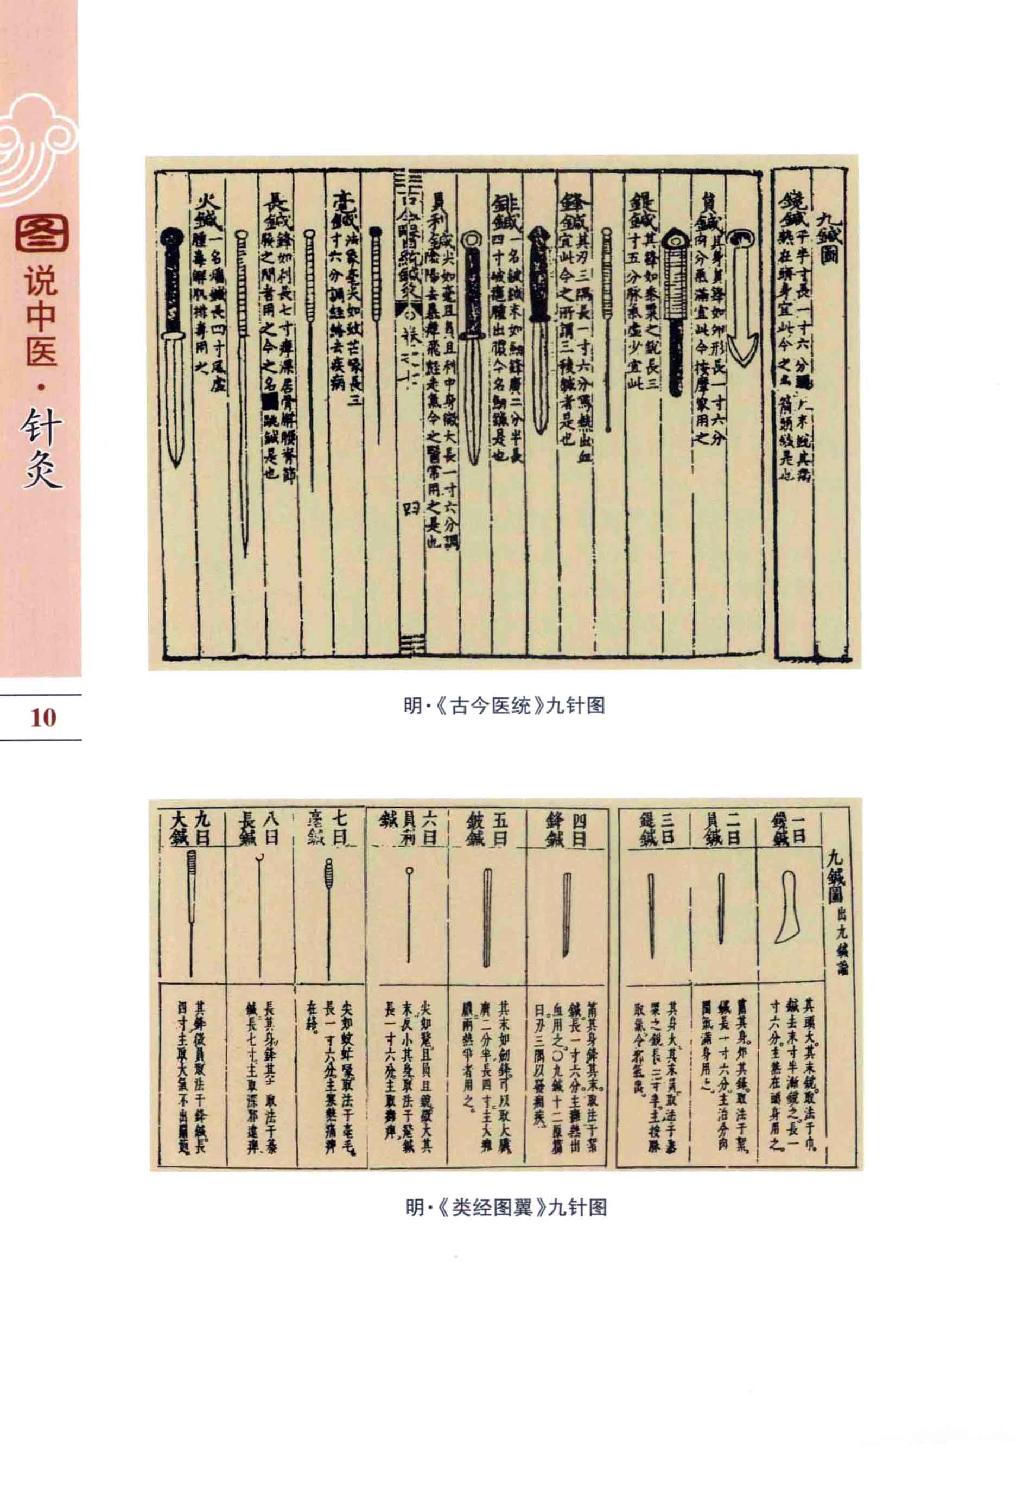 图说中医·针灸
10
九鍼圖
鑱鍼平半寸長一寸六分
熱在頭身宜此今之名箭頭鍼是也
員鍼其身員鋒如卵形長一寸六分
肉分氣滿宜此今按摩家用之
鍉鍼其鋒如黍粟之銳長三
寸五分脉氣虛少宜此
鋒鍼其刃三隅長一寸六分瀉熱出血
宜此今之所謂三稜鍼者是也
鈹鍼一名鈹鍼末如劍鋒廣二分半長
四寸破癰腫出膿今名劍鍼是也
員利鍼尖如氂且員且利中身微大長一寸六分調
陰陽去暴痺飛經走氣今之醫常用之是也
古今醫統
卷之七
四
毫鍼法象毫尖如蚊虻喙長三
寸六分調經絡去疾病
長鍼鋒如利長七寸痺深居骨解腰脊節
腠之間者用之今之名跳鍼是也
火鍼一名燔鍼長四寸風虛
腫毒解肌排毒用之
明·《古今医统》九针图
九鍼圖 出九鍼論
一曰鑱鍼
其頭大。其末銳。取法于巾
鍼去末寸半漸銳之。長一
寸六分。主熱在頭身用之。
二曰員鍼
其身。卵其鋒。取法于絮
鍼長一寸六分。主治分肉
間氣滿身用之。
三曰鍉鍼
其身大。其末員。取法于黍
粟之銳。長三寸半。主按脉
取氣。令邪氣出。
四曰鋒鍼
筩其身。鋒其末。取法于絮
鍼。長一寸六分。主癰熱出
血用之。○九鍼十二原篇
曰。刃三隅以發痼疾。
五曰鈹鍼
其末如劍鋒。可以取大膿
廣二分半。長四寸。主大癰
膿兩熱爭者用之。
六曰員利鍼
尖如氂。且員且銳。微大其
末。反小其身。取法于氂鍼
長一寸六分。主取癰痺。
七曰毫鍼
尖如蚊虻喙。取法于毫毛。
長一寸六分。主寒熱痛痺
在絡。
八曰長鍼
長其身。鋒其末。取法于綦
鍼。長七寸。主取深邪遠痺
九曰大鍼
其鋒微員。取法于鋒鍼。長
四寸。主取大氣不出關節。
明·《类经图翼》九针图